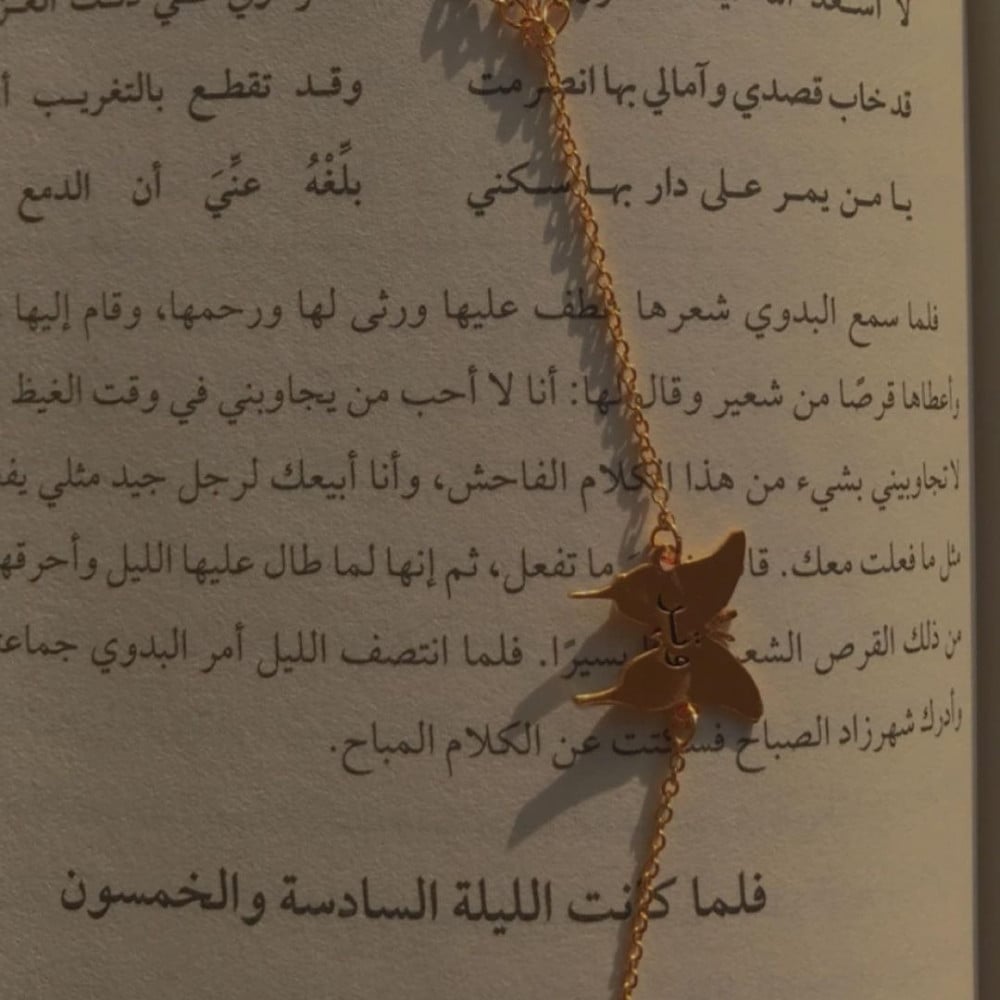 لا أسعد الله
قد خاب قصدي وآمالي بها انصرمت وقد تقطع بالتغريب
يا من يمر على دار بها سكني بلِّغْهُ عنِّيَ أن الدمع
فلما سمع البدوي شعرها عطف عليها ورثى لها ورحمها، وقام إليها
وأعطاها قرصًا من شعير وقال لها: أنا لا أحب من يجاوبني في وقت الغيظ
لا تجاوبيني بشيء من هذا الكلام الفاحش، وأنا أبيعك لرجل جيد مثلي
مثل ما فعلت معك. ما تفعل، ثم إنها لما طال عليها الليل وأحرقها
من ذلك القرص الشعير يسيرًا. فلما انتصف الليل أمر البدوي
وأدرك شهرزاد الصباح فسكتت عن الكلام المباح.
فلما كانت الليلة السادسة والخمسون